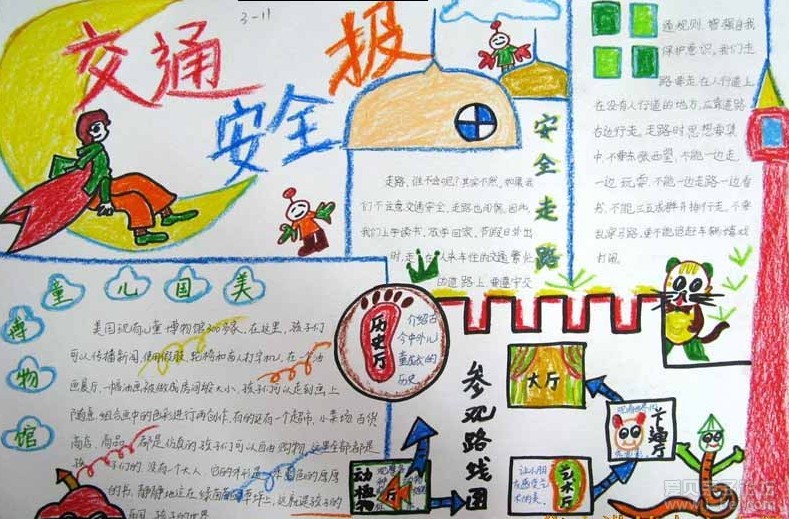 3-11
交通
安全
报
安全走路
走路,谁不会呢?其实不然,如果我
们不注意交通安全,走路也闯祸,因此,
我们上学读书,放学回家,节假日外出
时,走在人来车往的交通繁忙
的道路上,要遵守交
通规则,增强自我
保护意识,我们走
路要走在人行道上,
在没有人行道的地方,应靠道路
右边行走。走路时思想要集
中,不要东张西望,不能一边走,
一边玩耍,不能一边走路一边看
书,不能三五成群并排行走,不要
乱穿马路,更不能追赶车辆嬉戏
打闹。
美国儿童
博物馆
美国现有儿童博物馆300多家,在这里,孩子们
可以传播新闻,使用假肢、轮椅和盲人打字机,在一个油
画展厅,一幅油画被做成房间般大小,孩子们可以走到画上
随意组合画中的色彩进行再创作,有的还有一个超市,小菜场、百货
商店,商品都是仿真的孩子们可以自由购物,这里全部都是
孩子们的,没有一个大人,
的书,静静地
国,孩子的世界
历史厅
介绍古
今中外儿
童成长的
历史
参观路线图
大厅
卡通厅
艺术厅
让小朋
友感受艺
术的美。
动植物